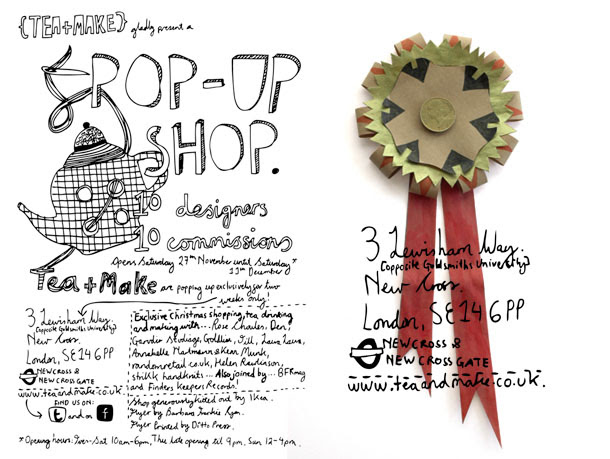 {TEA+MAKE} gladly present a
POP-UP
SHOP.
10 designers
10 commissions
Opens Saturday 27th November until Saturday*
11th December
Tea+Make are popping up exclusively for two
weeks only!
3 Lewisham Way.
[opposite Goldsmiths University]
New Cross.
London, SE14 6PP
NEWCROSS &
NEWCROSSGATE
www.teaandmake.co.uk.
FIND US ON:
t and on f
Exclusive Christmas shopping, tea, drinking
and making with... Rose Charles, Den,
Gander Studios, Goldlia, Jill, Laura
Annabelle Hartmann & Kean Munk,
randomretail.co.uk, Helen Rawlinson,
shiti.k handknits... Also joined by... BFKmag
and Finders Keepers Records!
Shop generously kitted out by Ikea.
Flyer by Barbara
Flyer Printed by Ditto Press.
*Opening hours: Tues-Sat 10am-6pm, Thu late opening til 9pm, Sun 12-4pm.
3 Lewisham Way.
[opposite Goldsmiths University]
New Cross.
London, SE14 6PP
NEWCROSS &
NEWCROSSGATE
www.teaandmake.co.uk.